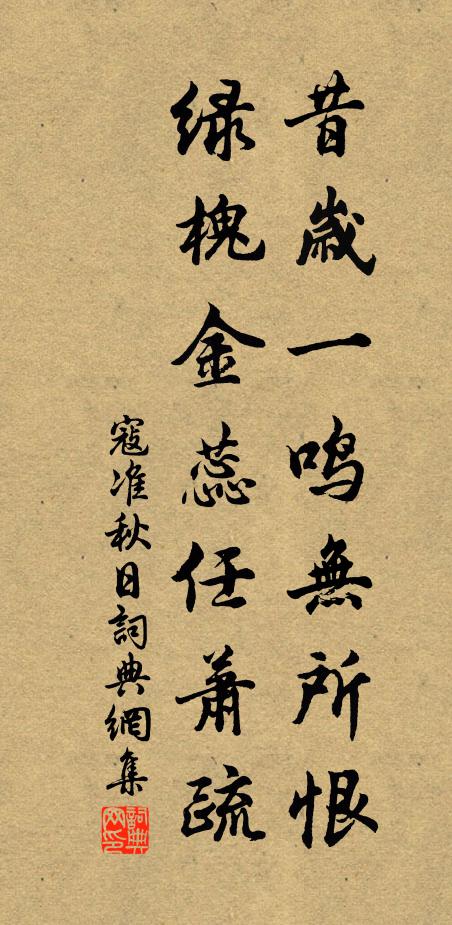 昔歲一鳴無所恨
緑槐金蕊任蕭疏
寇准秋日詞典網集
詞典网印